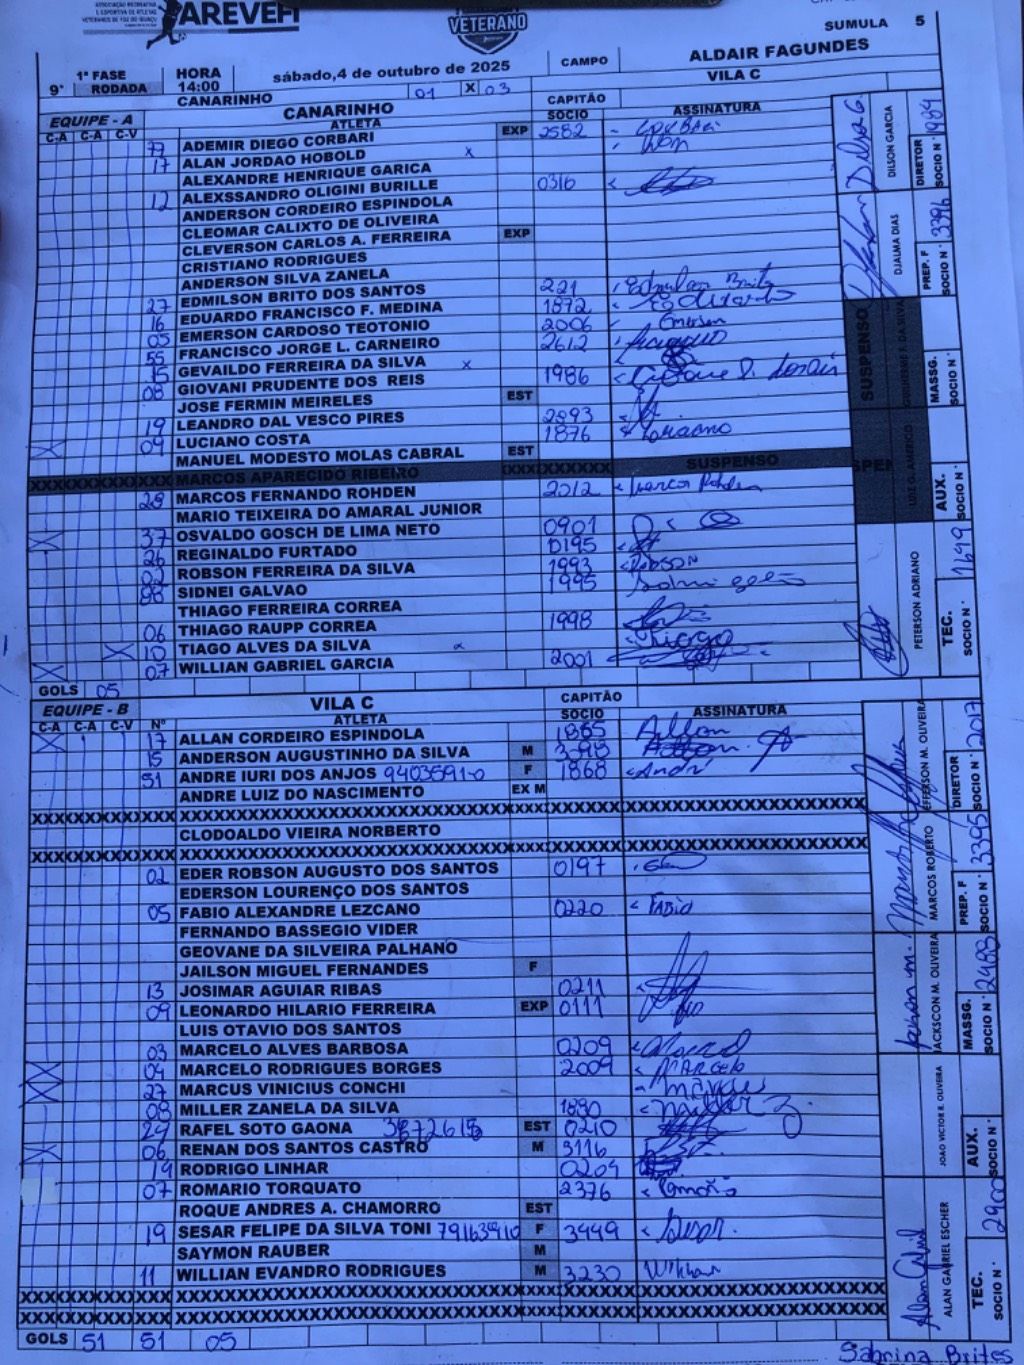 ASSOCIAÇÃO RECREATIVA
E ESPORTIVA DE ATLETAS
VETERANOS DE FOZ DO IGUAÇU
AREVEFI
VETERANO
SUMULA 5
1ª FASE HORA sábado,4 de outubro de 2025 CAMPO ALDAIR FAGUNDES
9ª RODADA 14:00 VILA C
CANARINHO 01 X 03
EQUIPE - A CANARINHO CAPITÃO
C-A C-A C-V ATLETA SOCIO ASSINATURA
77 ADEMIR DIEGO CORBARI EXP 2582
17 ALAN JORDAO HOBOLD x
ALEXANDRE HENRIQUE GARICA
12 ALEXSSANDRO OLIGINI BURILLE 0316
ANDERSON CORDEIRO ESPINDOLA
CLEOMAR CALIXTO DE OLIVEIRA
CLEVERSON CARLOS A. FERREIRA EXP
CRISTIANO RODRIGUES
ANDERSON SILVA ZANELA
27 EDMILSON BRITO DOS SANTOS 221 Edmilson Brito
16 EDUARDO FRANCISCO F. MEDINA 1872 Eduardo
05 EMERSON CARDOSO TEOTONIO 2006 Emerson
55 FRANCISCO JORGE L. CARNEIRO 2612
15 GEVAILDO FERREIRA DA SILVA x
08 GIOVANI PRUDENTE DOS REIS 1986
JOSE FERMIN MEIRELES EST
19 LEANDRO DAL VESCO PIRES 2893
09 LUCIANO COSTA 1876 Luciano
MANUEL MODESTO MOLAS CABRAL EST
XXXXXXXXXXXXXX MARCOS APARECIDO RIBEIRO XXXXXXXXXX SUSPENSO
28 MARCOS FERNANDO ROHDEN 2012 Marcos Rohden
MARIO TEIXEIRA DO AMARAL JUNIOR
37 OSVALDO GOSCH DE LIMA NETO 0901
26 REGINALDO FURTADO 0195
02 ROBSON FERREIRA DA SILVA 1993 ROBSON
98 SIDNEI GALVAO 1995
THIAGO FERREIRA CORREA
06 THIAGO RAUPP CORREA 1998
10 TIAGO ALVES DA SILVA x Thiago
07 WILLIAN GABRIEL GARCIA 2001
GOLS 05
DILSON GARCIA
DIRETOR
SOCIO N° 1984
DJALMA DIAS
PREP. F
SOCIO N° 3396
SUSPENSO
GUILHERME F. DA SILVA
MASSG.
SOCIO N°
LUIS G. AMERICO
AUX.
SOCIO N°
PETERSON ADRIANO
TEC.
SOCIO N° 1649
EQUIPE - B VILA C CAPITÃO
C-A C-A C-V Nº ATLETA SOCIO ASSINATURA
17 ALLAN CORDEIRO ESPINDOLA 1865
15 ANDERSON AUGUSTINHO DA SILVA M 3098
51 ANDRE IURI DOS ANJOS 9403591-0 F 1868 André
ANDRE LUIZ DO NASCIMENTO EX M
XXXXXXXXXXXXXXXXXXXXXXXXXXXXXXXXXXXXXXXX
CLODOALDO VIEIRA NORBERTO
XXXXXXXXXXXXXXXXXXXXXXXXXXXXXXXXXXXXXXXX
02 EDER ROBSON AUGUSTO DOS SANTOS 0197
EDERSON LOURENÇO DOS SANTOS
05 FABIO ALEXANDRE LEZCANO 0220 FABIO
FERNANDO BASSEGIO VIDER
GEOVANE DA SILVEIRA PALHANO
JAILSON MIGUEL FERNANDES F
13 JOSIMAR AGUIAR RIBAS 0211
09 LEONARDO HILARIO FERREIRA EXP 0111
LUIS OTAVIO DOS SANTOS
03 MARCELO ALVES BARBOSA 0209
04 MARCELO RODRIGUES BORGES 2009 MARCELO
27 MARCUS VINICIUS CONCHI
08 MILLER ZANELA DA SILVA 1890 Miller Z
24 RAFEL SOTO GAONA EST 0210
06 RENAN DOS SANTOS CASTRO M 3116
14 RODRIGO LINHAR 0204
07 ROMARIO TORQUATO 2376
ROQUE ANDRES A. CHAMORRO EST
19 SESAR FELIPE DA SILVA TONI F 3449 Sesar
SAYMON RAUBER M
11 WILLIAN EVANDRO RODRIGUES M 3230 Willian
XXXXXXXXXXXXXXXXXXXXXXXXXXXXXXXXXXXXXXXX
XXXXXXXXXXXXXXXXXXXXXXXXXXXXXXXXXXXXXXXX
GOLS 51 51 05
JEFFERSON M. OLIVEIRA
DIRETOR
SOCIO N° 2017
MARCOS ROBERTO
PREP. F
SOCIO N° 3395
JACKSCON M. OLIVEIRA
MASSG.
SOCIO N° 2488
JOAO VICTOR R. OLIVEIRA
AUX.
SOCIO N°
ALAN GABRIEL ESCHER
TEC.
SOCIO N° 2900
Sabrina Brites